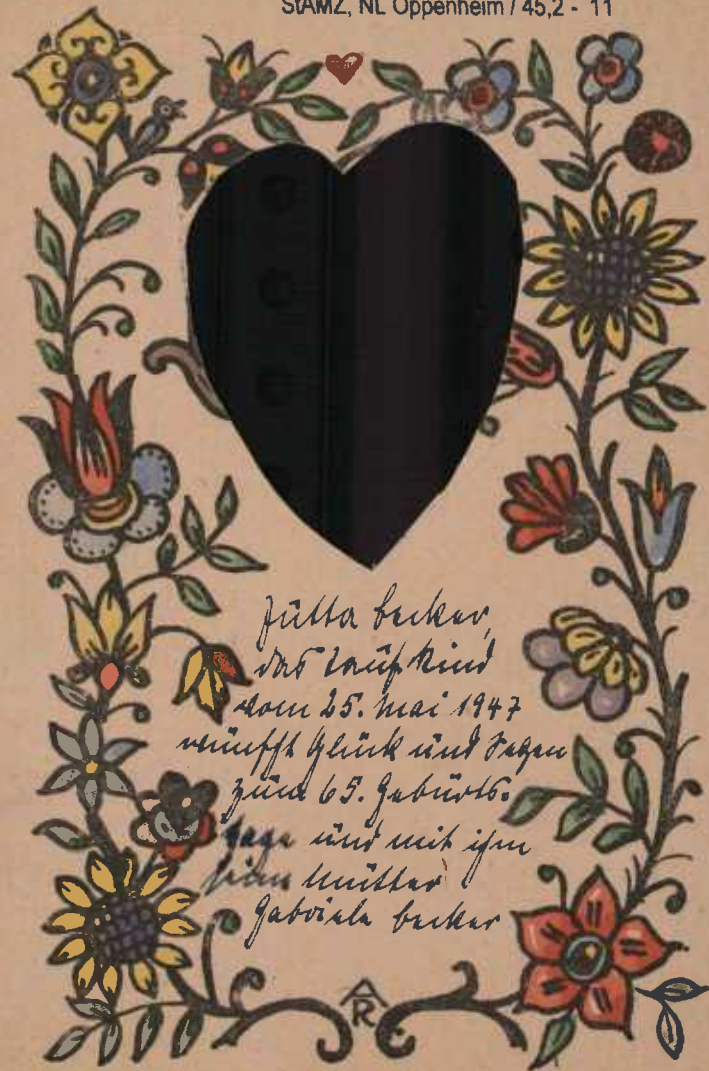 StAMZ, NL Oppenheim / 45,2 - 11
Jutta Becker,
das Taufkind
vom 25. Mai 1947
wünscht Glück und Segen
zum 65. Geburts-
tage und mit ihm
seine Mutter
Gabriele Becker
AR